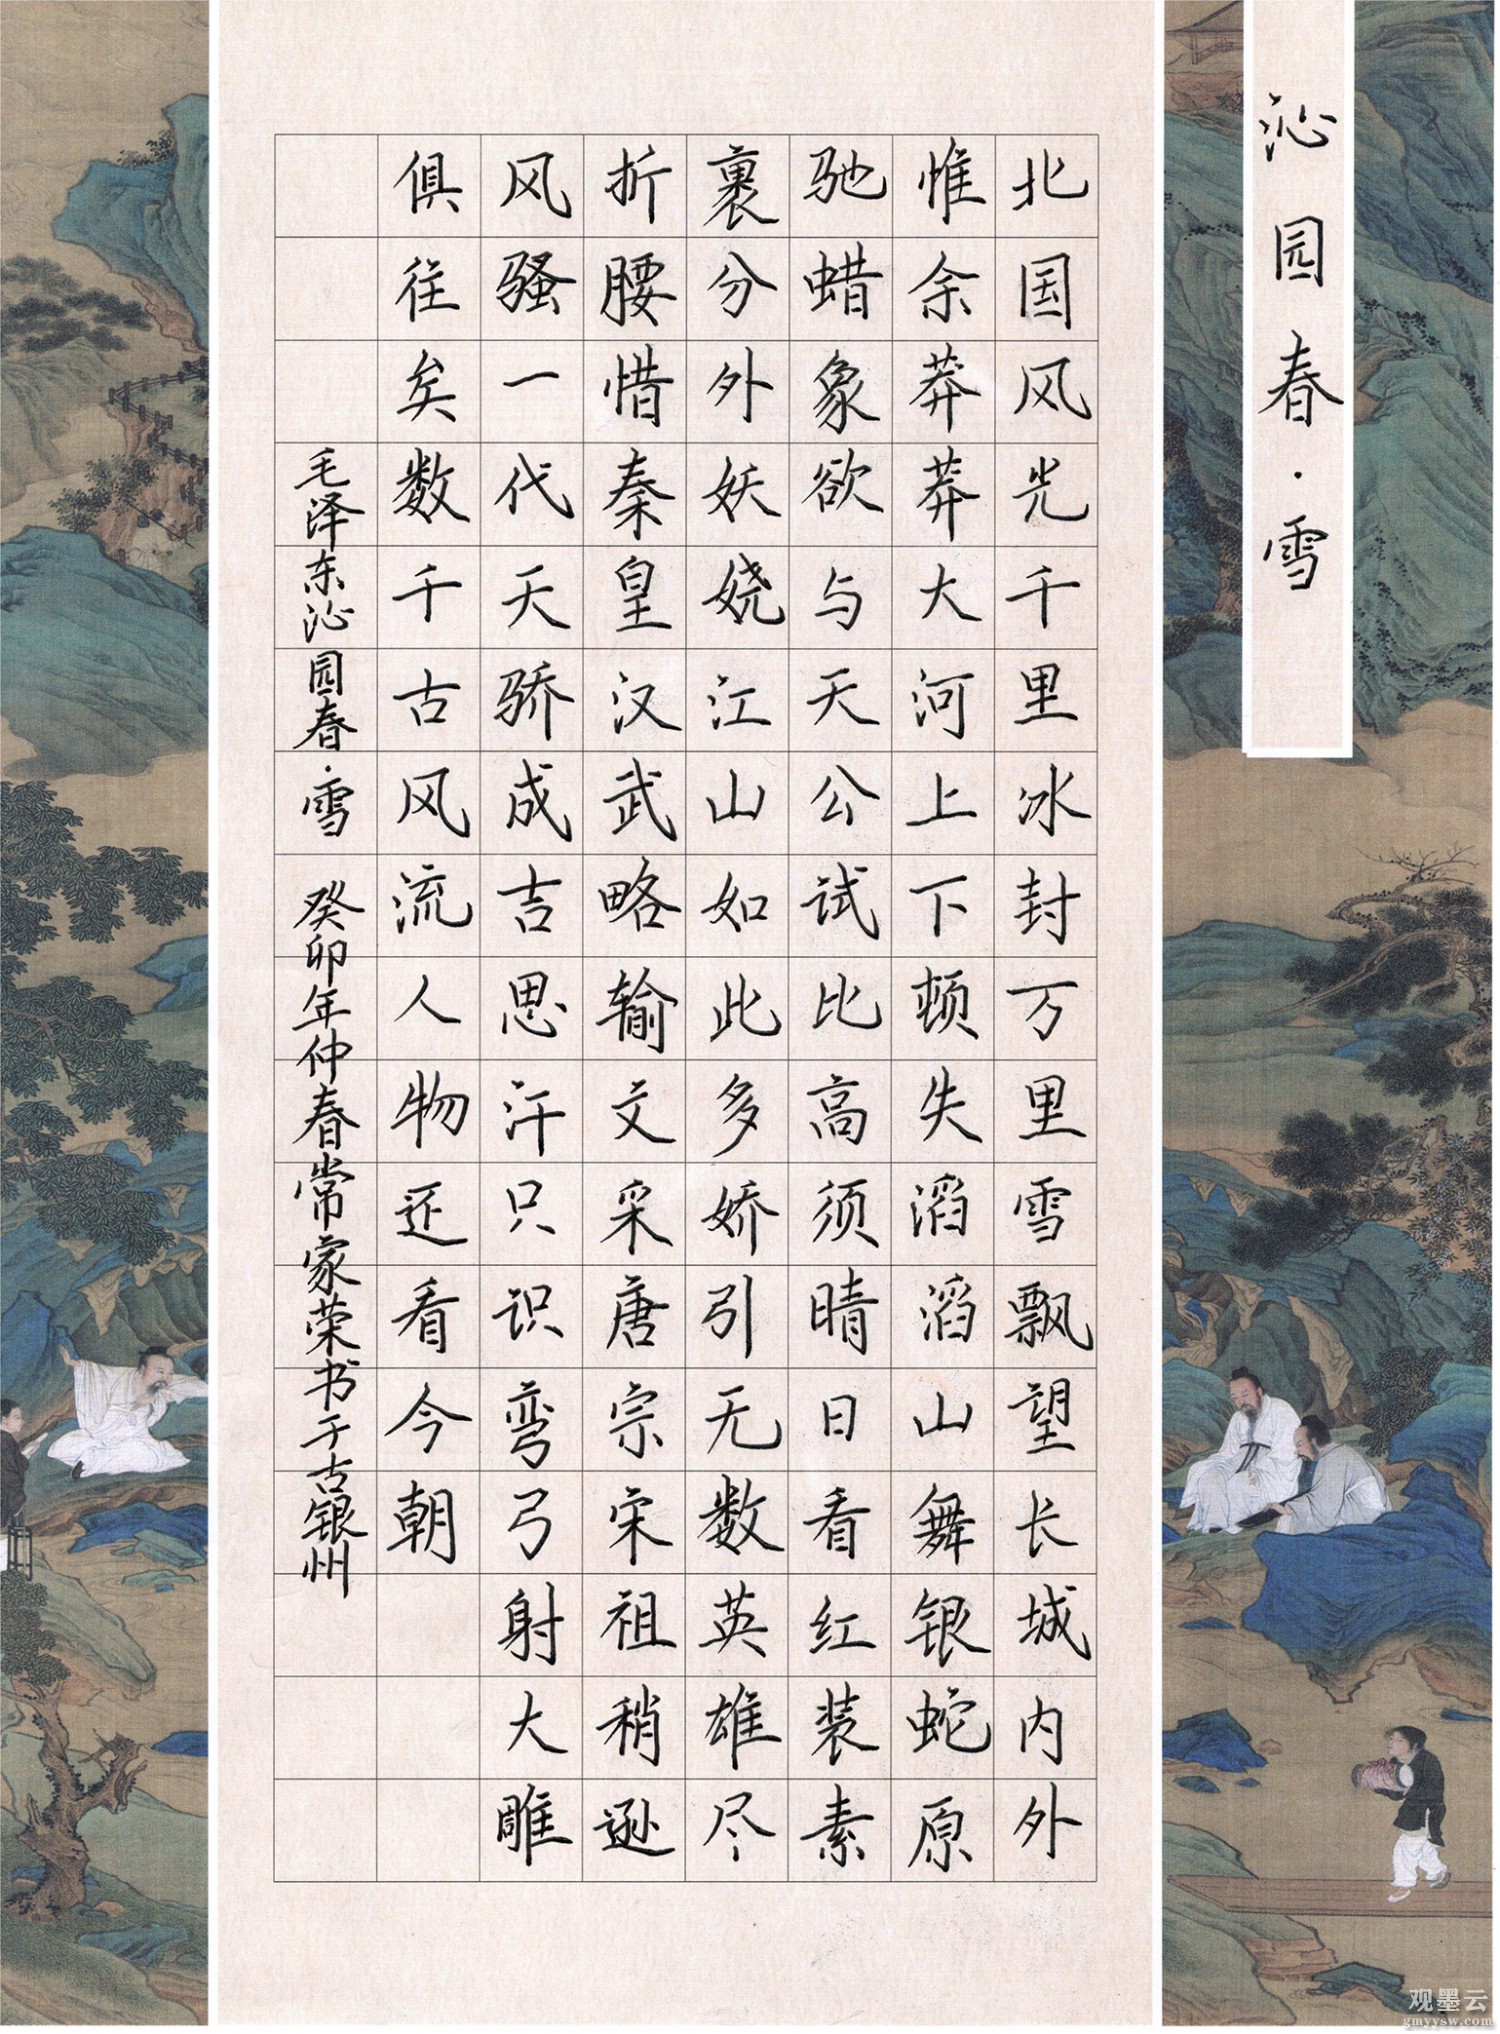 沁园春·雪
北国风光千里冰封万里雪飘望长城内外
惟余莽莽大河上下顿失滔滔山舞银蛇原
驰蜡象欲与天公试比高须晴日看红装素
裹分外妖娆江山如此多娇引无数英雄尽
折腰惜秦皇汉武略输文采唐宗宋祖稍逊
风骚一代天骄成吉思汗只识弯弓射大雕
俱往矣数千古风流人物还看今朝
毛泽东沁园春·雪 癸卯年仲春常家荣书于古银州
观墨云
gmyysw.com